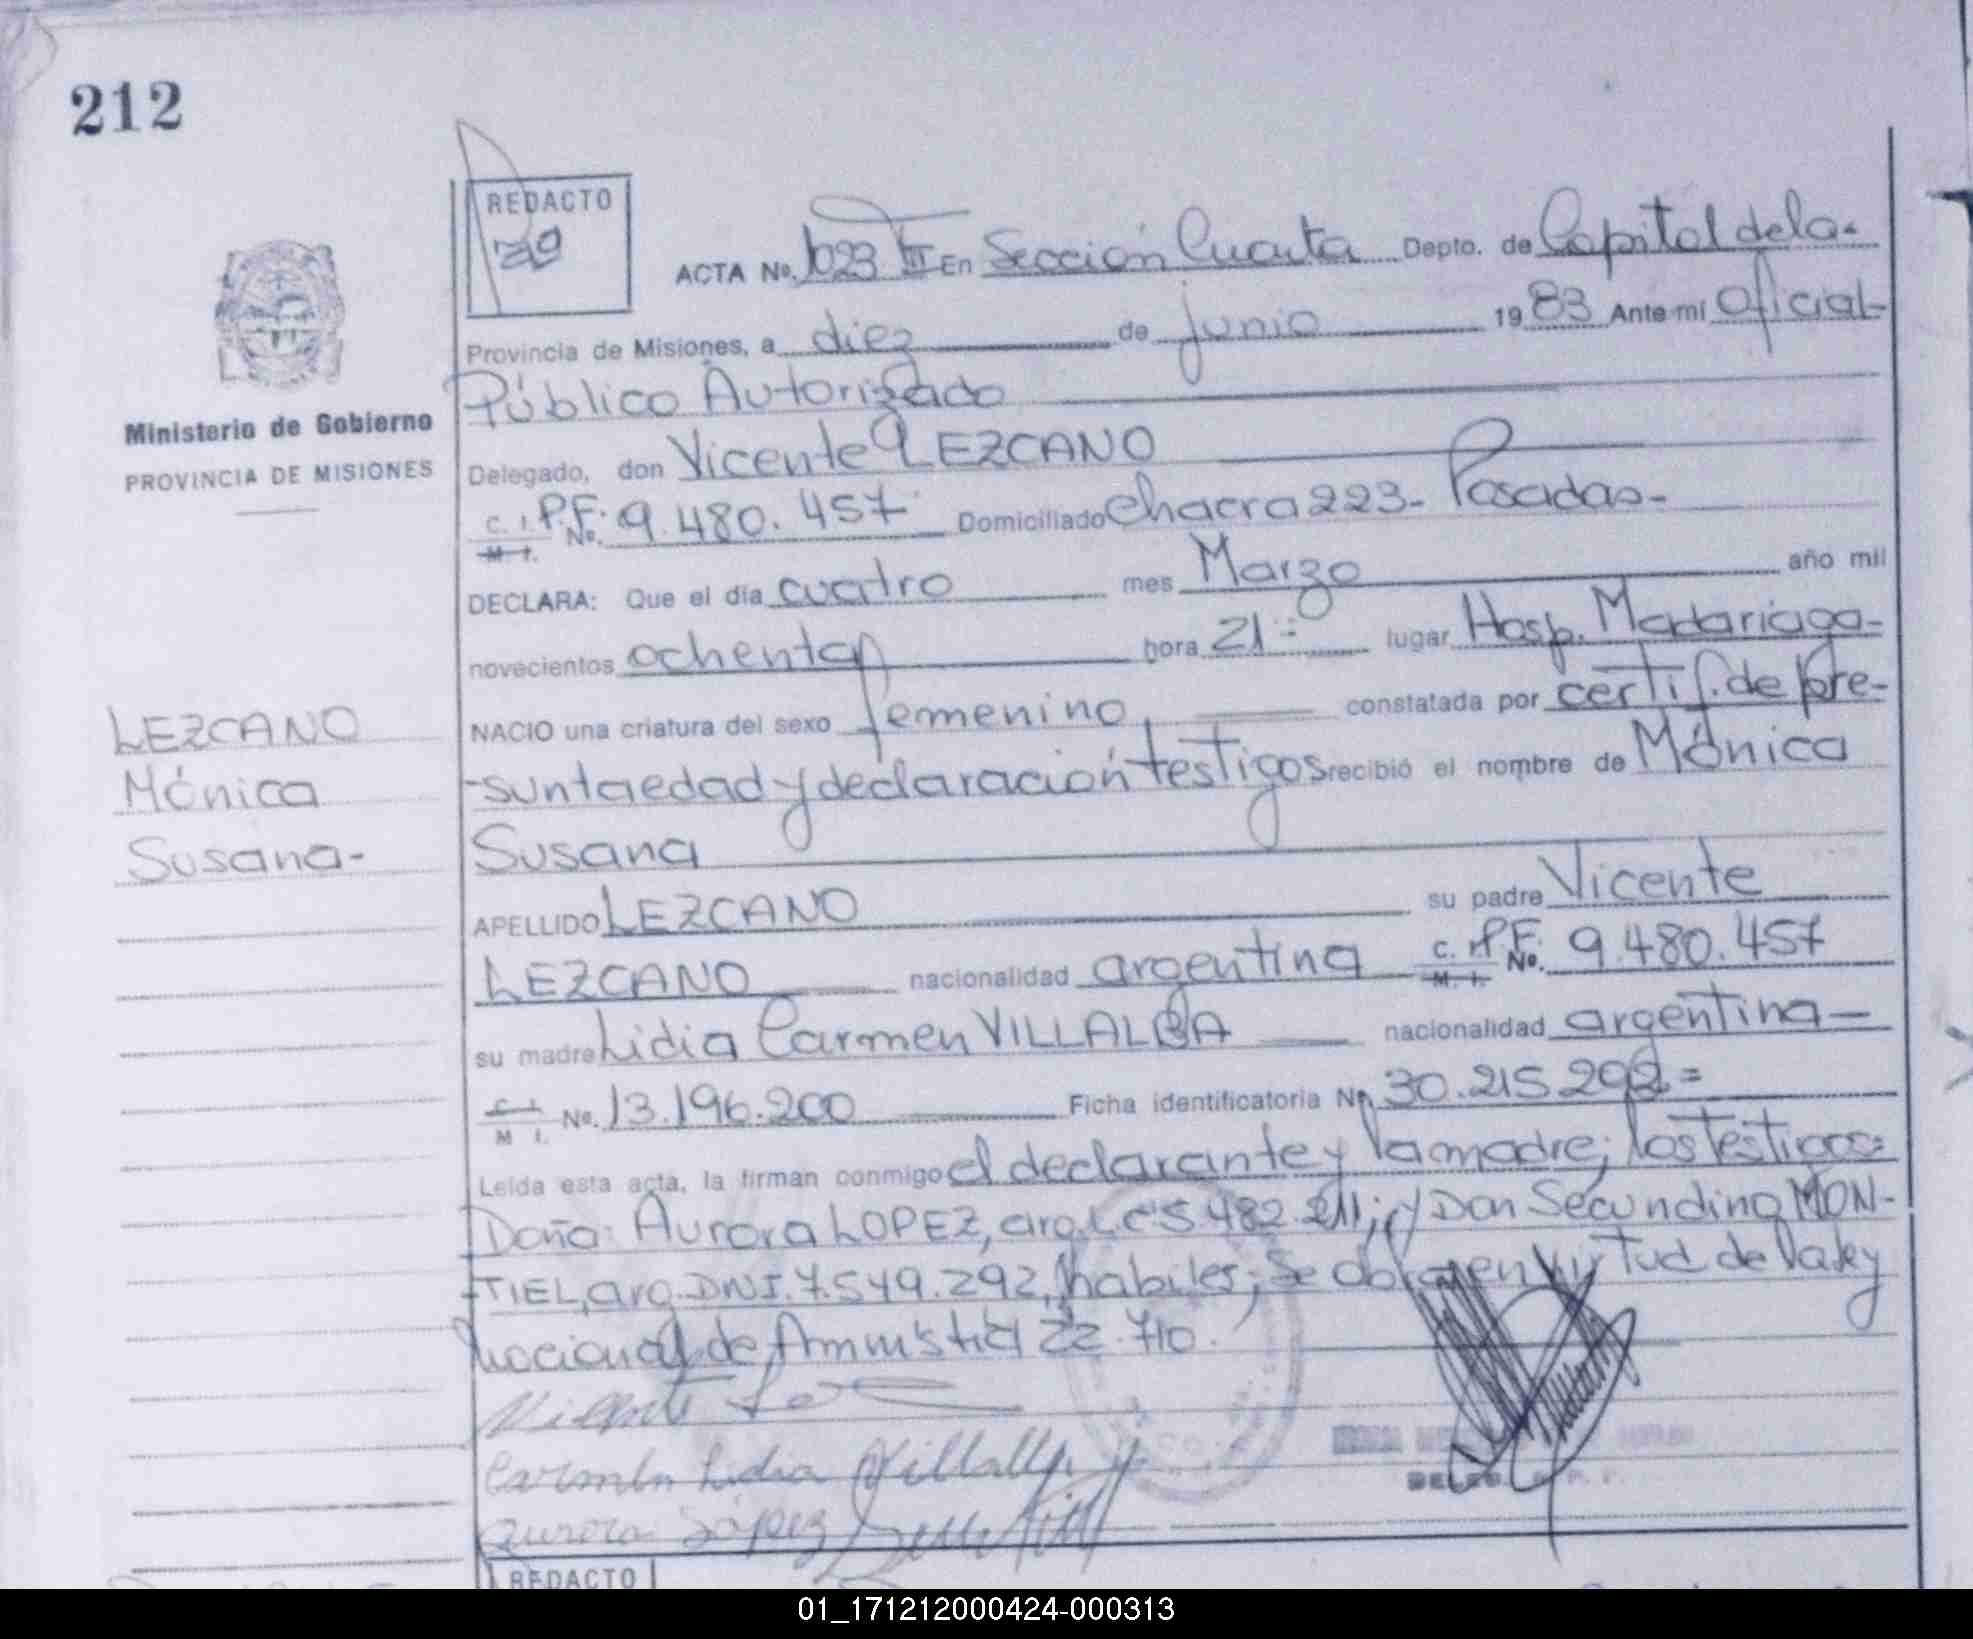 212
REDACTO
ACTA No. 1023 III En Sección Cuarta Depto. de Capital de la-
Provincia de Misiones, a diez de junio 1983 Ante mi Oficial-
Público Autorizado
Ministerio de Gobierno
PROVINCIA DE MISIONES
Delegado, don Vicente LEZCANO
C. I. P.F. No. 9.480.457 Domiciliado Chacra 223- Posadas-
M. I.
DECLARA: Que el día cuatro mes Marzo año mil
novecientos ochenta hora 21 lugar Hosp. Madariaga-
NACIO una criatura del sexo femenino, constatada por certif. de pre-
-sunta edad y declaración testigos recibió el nombre de Mónica
Susana
LEZCANO
Mónica
Susana-
APELLIDO LEZCANO su padre Vicente
LEZCANO nacionalidad argentina C. I. P.F. No. 9.480.457
M. I.
su madre Lidia Carmen VILLALBA nacionalidad argentina-
C. I.
M I. No. 13.196.200 Ficha identificatoria No 30.215.292=
Leída esta acta, la firman conmigo el declarante y la madre; los testigos:
Doña: Aurora LOPEZ, arg. L.C 5.482.211; y Don Secundino MON-
-TIEL, arg. DNI. 7.549.292, habiles; Se labra en virtud de la ley
nacional de Amnistia 22.710.
Vicente
Carmen Lidia Villalba
Aurora López
REDACTO
01_171212000424-000313